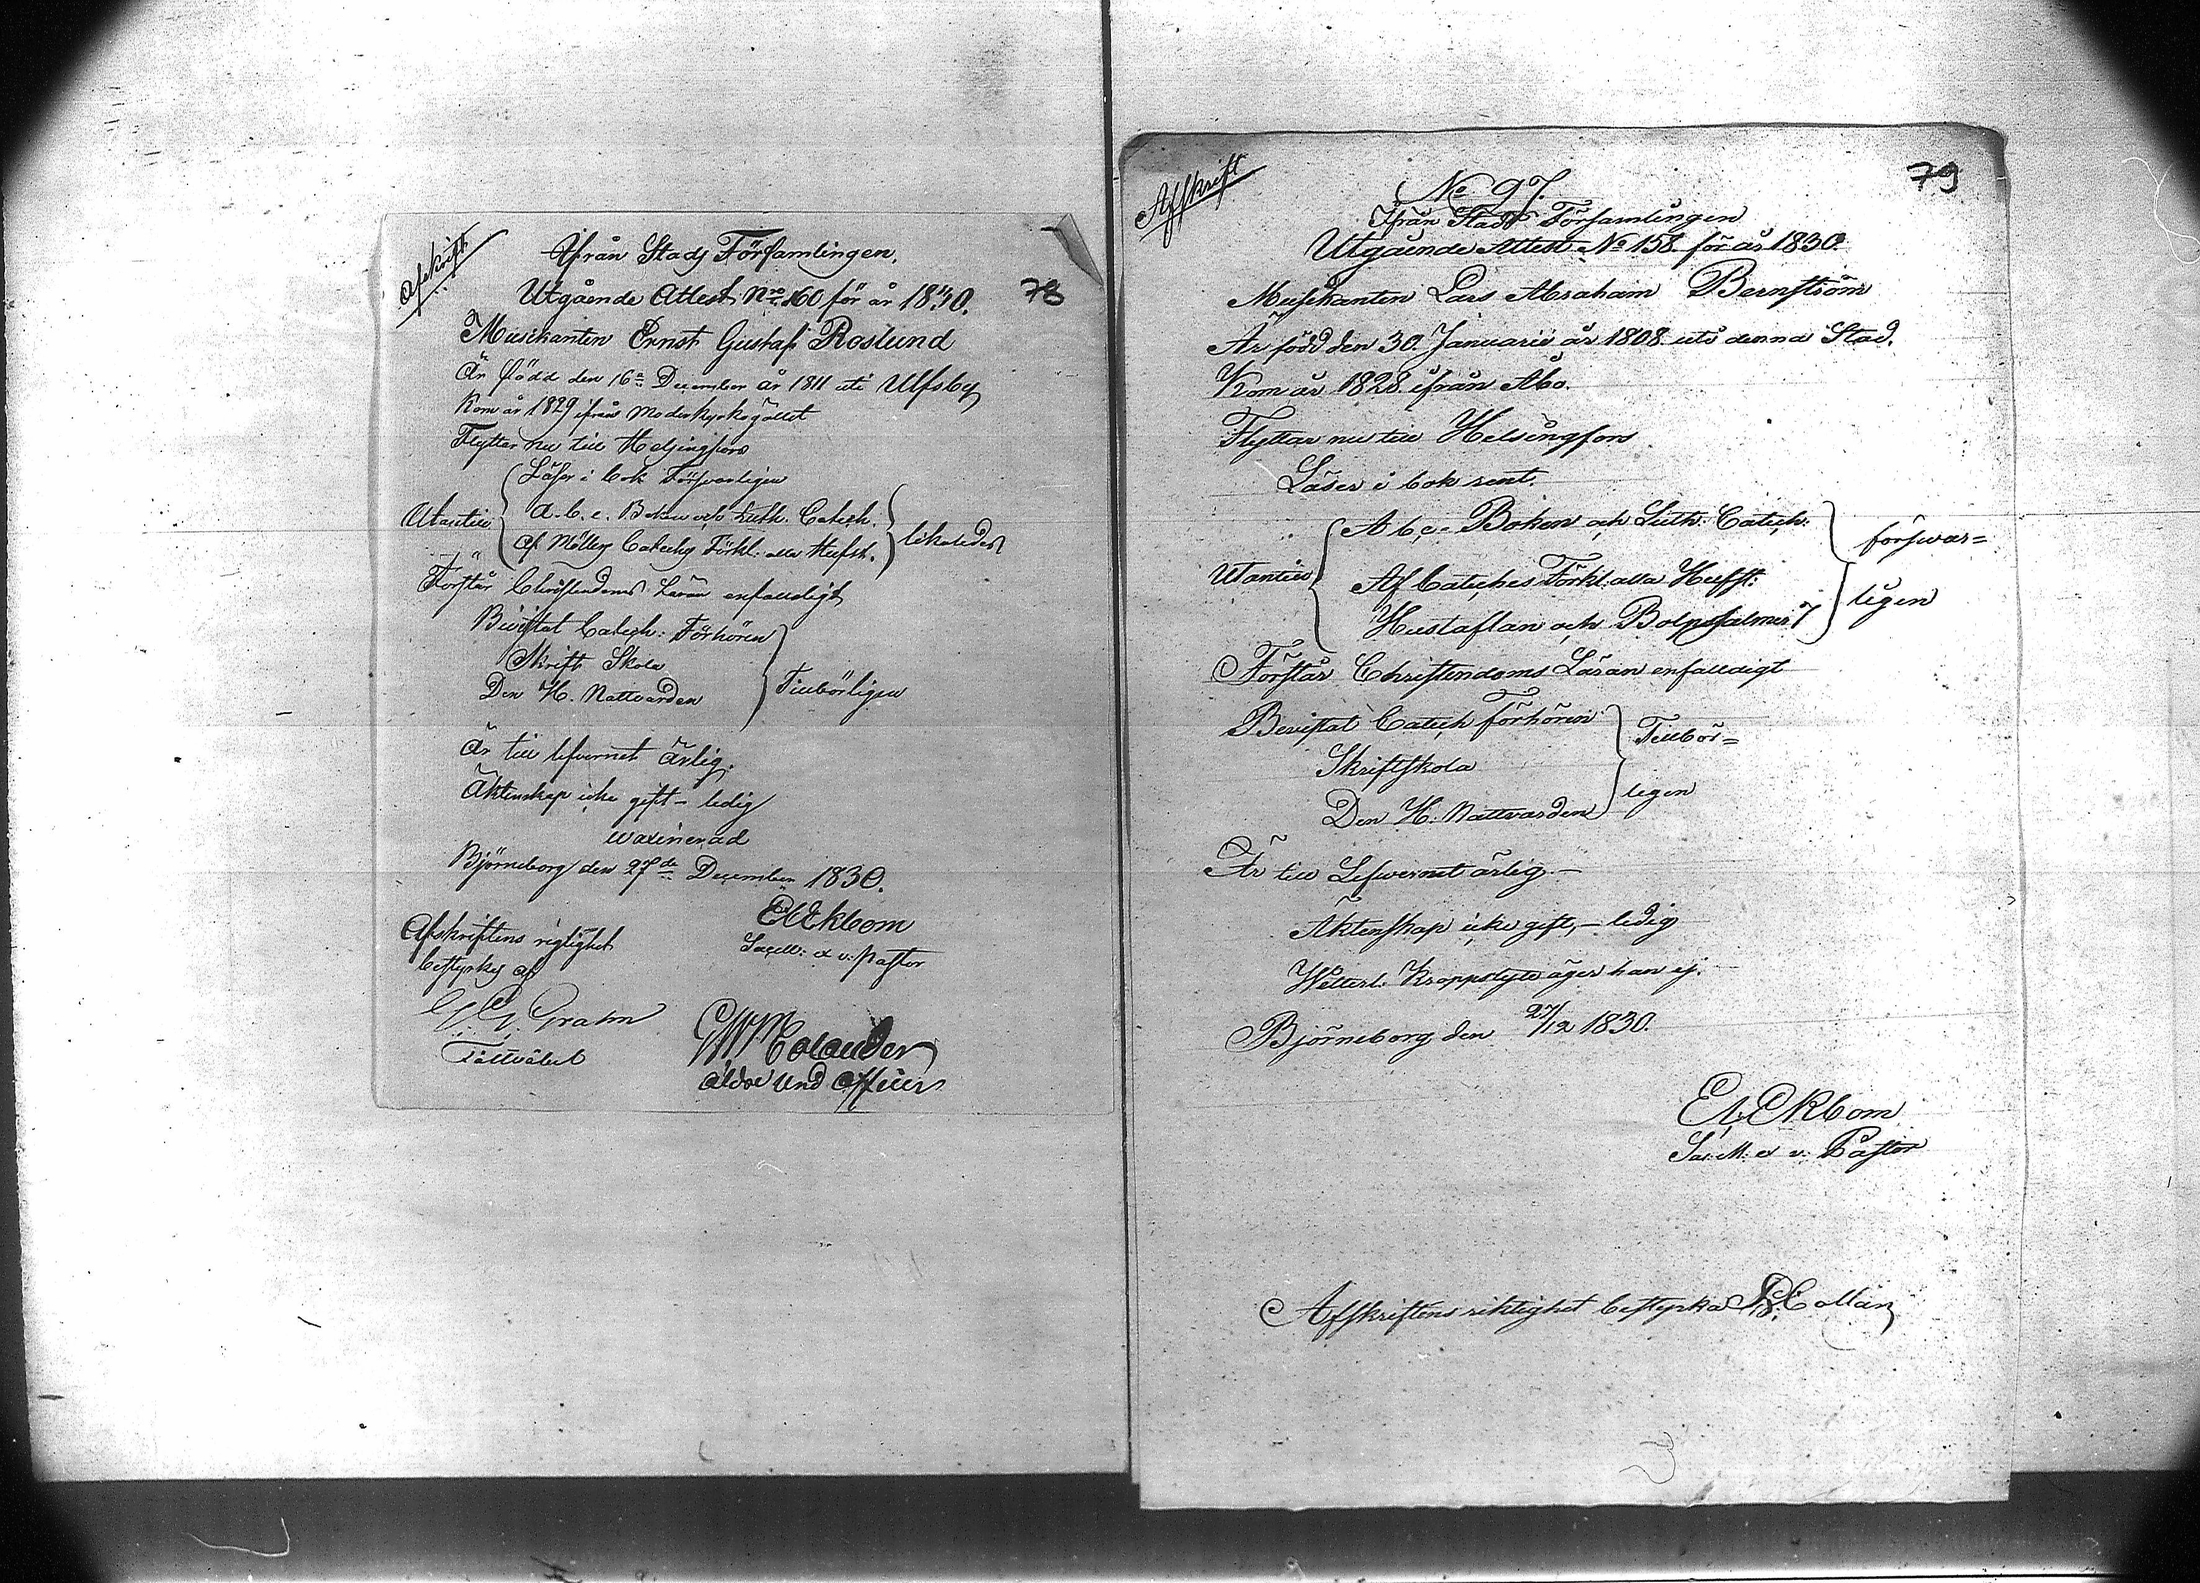 Afskrift
Ifrån Stads Församlingen,
Utgående Attest Nro 160 för år 1830.
78
Musikanten Ernst Gustaf Roslund
Är född den 16de December år 1811 uti Ulfsby
Kom år 1829 ifrån Moderkyrkogället
Flyttar nu till Helsingfors
Läser i bok Försvarligen
Utantill
A. b. c. Boken och Luth. Catech.
Af Möllers Catechs Förkl: alla Hufst.
likaledes
Förstår Christendoms Läran enfalldigt
Bivistat Catech: Förhören
Skrift Skola
Den H. Nattvarden
Tillbörligen
Är till lefvernet ärlig.
Äktenskap icke gift – ledig
waxinerad
Björneborg den 27de December 1830.
Ekbom
Sacell: o v. Pastor
Afskriftens rigtighet
bestyrkes af
G. G. Grahn
Fältväbel
Colander
äldre Und Officer
Afskrift
79
No 97.
Ifrån Stads Församlingen
Utgående Attest No 158 för år 1830.
Musikanten Lars Abraham Bernström
Är född den 30. Januarii år 1808 uti denna Stad.
Kom år 1828 ifrån Åbo.
Flyttar nu till Helsingfors
Läser i bok rent.
Utantill
A b c Boken och Luth: Catech:
Af Catches Förkl: alla Hufst:
Hustaflan och Botpsalmer 7
försvar=
ligen
Förstår Christendoms Läran enfalldigt
Bevistat Catech Förhören
Skriftskola
Den H. Nattvarden
Tillbör=
ligen
Är till Lefvernet ärlig. –
Äktenskap icke gift, – ledig
Wetterl. Kroppslyte äger han ej.
Björneborg den 27/12 1830.
Ekbom
Sacell: o v: Pastor
Afskriftens riktighet bestyrka Collan